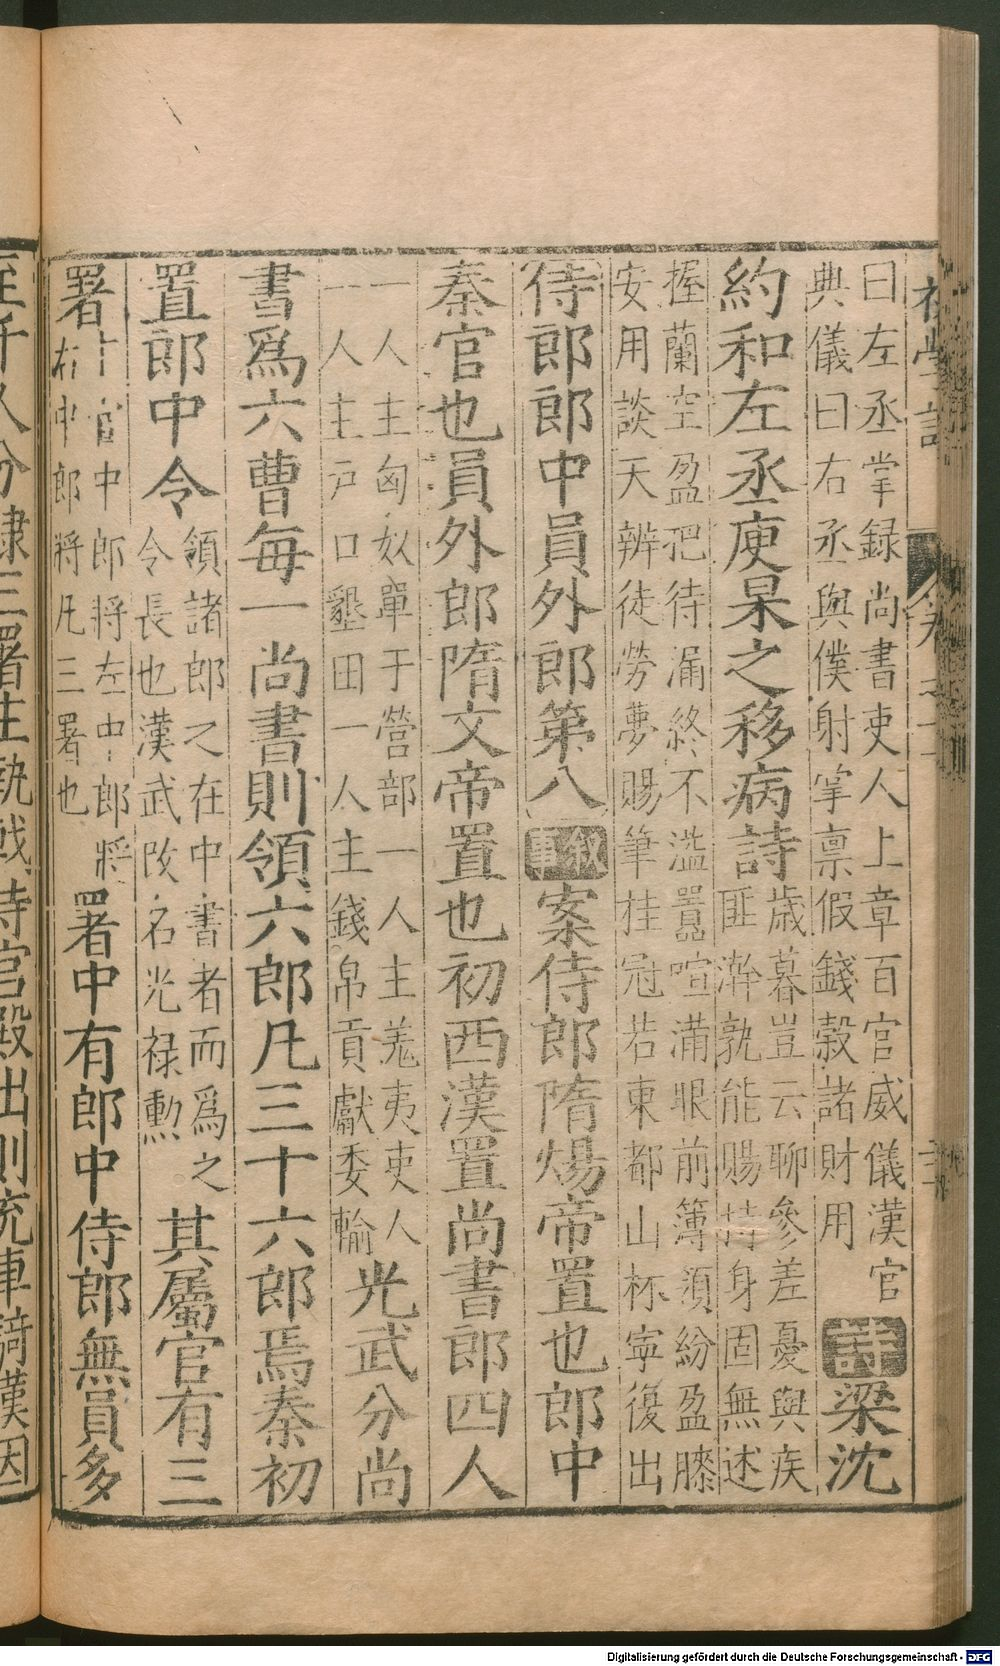 曰左丞掌録尚書吏人上章百官威儀漢官
典儀曰右丞與僕射掌禀假錢穀諸財用
詩梁沈
約和左丞庾杲之移病詩
歲暮豈云聊參差憂與疾
匪澣孰能賜持身固無述
握蘭空盈把待漏終不溢囂喧滿眼前簿領紛盈膝
安用談天辨徒勞夢賜筆桂冠若東都山林寧復出
侍郎郎中員外郎第八
敘事
案侍郎隋煬帝置也郎中
秦官也員外郎隋文帝置也初西漢置尚書郎四人
一人主匈奴單于營部一人主羗夷吏人
一人主戸口墾田一人主錢帛貢獻委輸
光武分尚
書爲六曹每一尚書則領六郎凡三十六郎焉秦初
置郎中令
領諸郎之在中書者而爲之
令長也漢武改名光禄勳
其屬官有三
署
官中郎將左中郎將
右中郎將凡三署也
署中有郎中侍郎無員多
至千人分隷三署主執戟侍官殿出則充車騎漢因
Digitalisierung gefördert durch die Deutsche Forschungsgemeinschaft - DFG